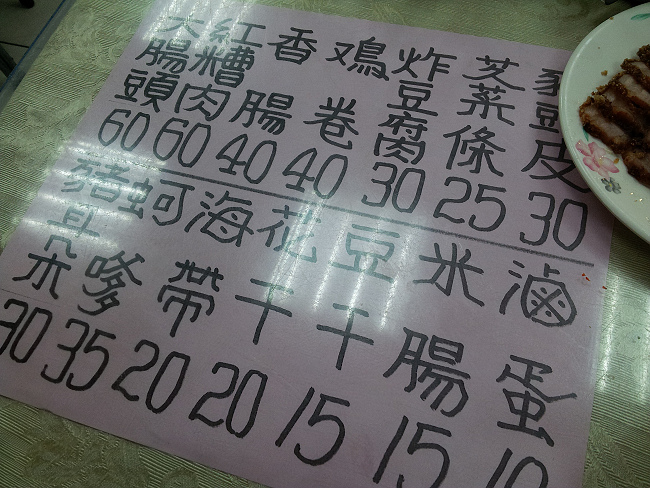 豬頭皮 30
菜條 25
炸豆腐 30
鷄卷 40
香腸 40
紅糟肉 60
大腸頭 60
滷蛋 10
米腸 15
豆干 15
花干 20
海帶 20
蚵嗲 35
豬耳朵 30